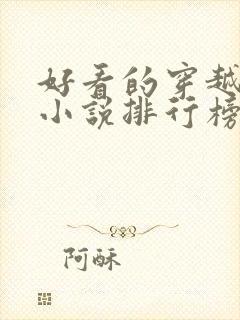 好看的穿越
小说排行榜
阿酥